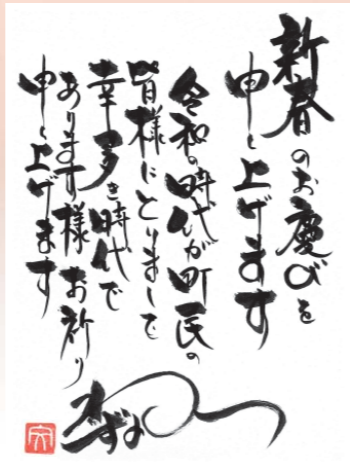 新春のお慶びを
申し上げます
令和の時代が町民の
皆様にとりまして
幸多き時代で
あります様お祈り
申し上げます